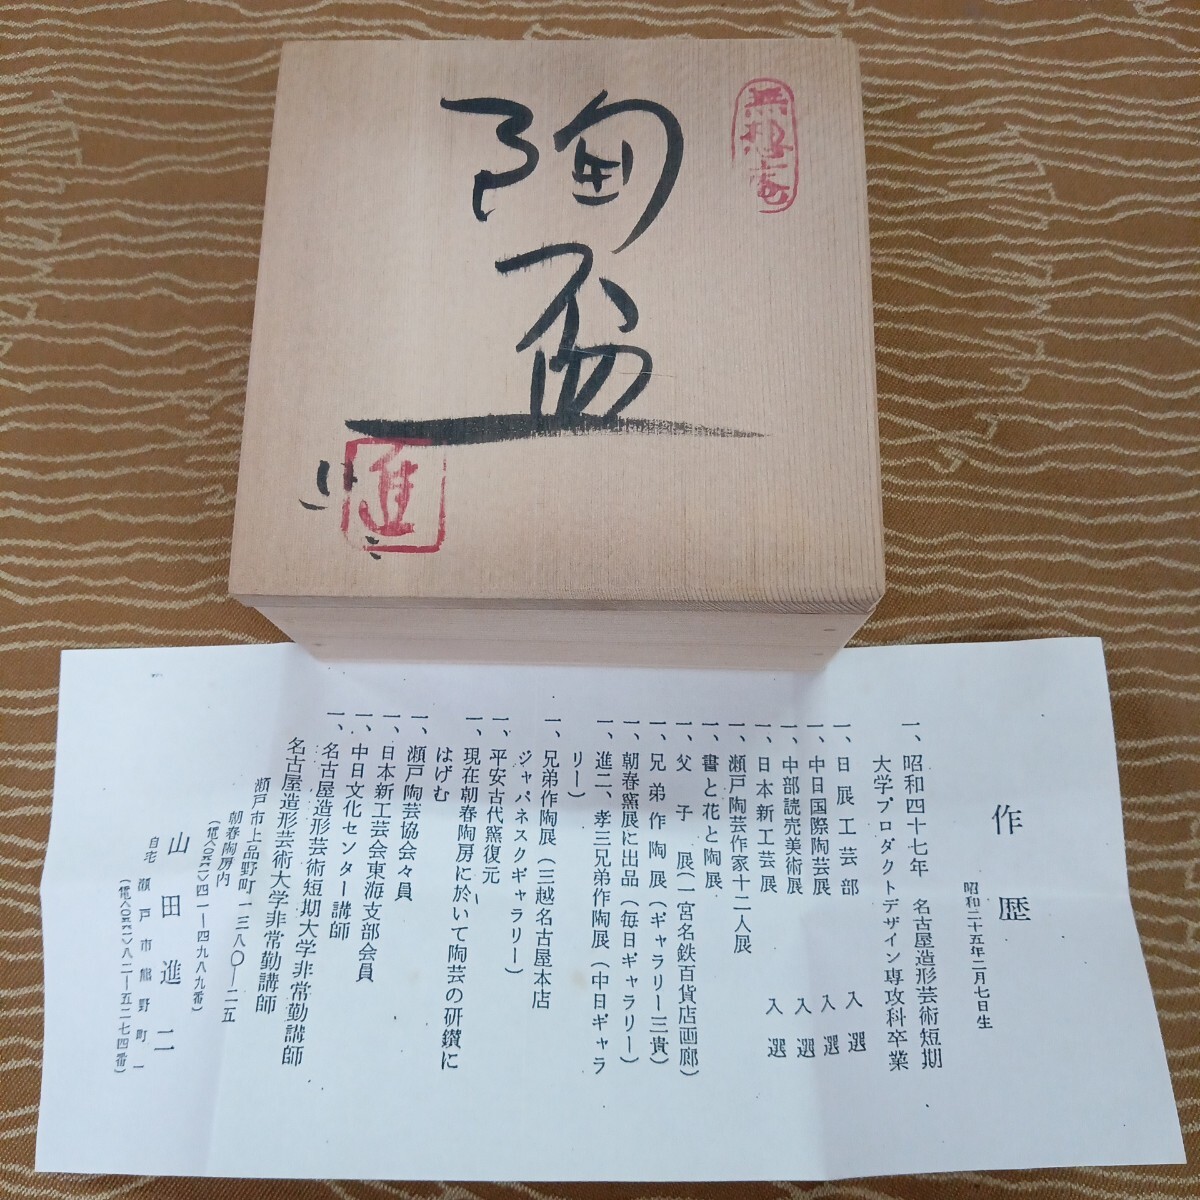 陶盃
進
作歴
昭和二十五年二月七日生
一、昭和四十七年 名古屋造形芸術短期
大学プロダクトデザイン専攻科卒業
一、日展工芸部 入選
一、中日国際陶芸展 入選
一、中部読売美術展 入選
一、日本新工芸展 入選
一、瀬戸陶芸作家十二人展
一、書と花と陶展
一、父子展(一宮名鉄百貨店画廊)
一、兄弟作陶展(ギャラリー三貴)
一、朝春窯展に出品(毎日ギャラリー)
一、進二、孝三兄弟作陶展(中日ギャラ
リー)
一、兄弟作陶展(三越名古屋本店
ジャパネスクギャラリー)
一、平安古代窯復元
一、現在朝春陶房に於いて陶芸の研鑽に
はげむ
一、瀬戸陶芸協会々員
一、日本新工芸会東海支部会員
一、中日文化センター講師
一、名古屋造形芸術短期大学非常勤講師
名古屋造形芸術大学非常勤講師
瀬戸市上品野町一三八〇―二五
朝春陶房内
(電〈〇五六一〉四一―四九八九番)
山田進二
自宅 瀬戸市熊野町一
(電〈〇五六一〉八二―五二七四番)